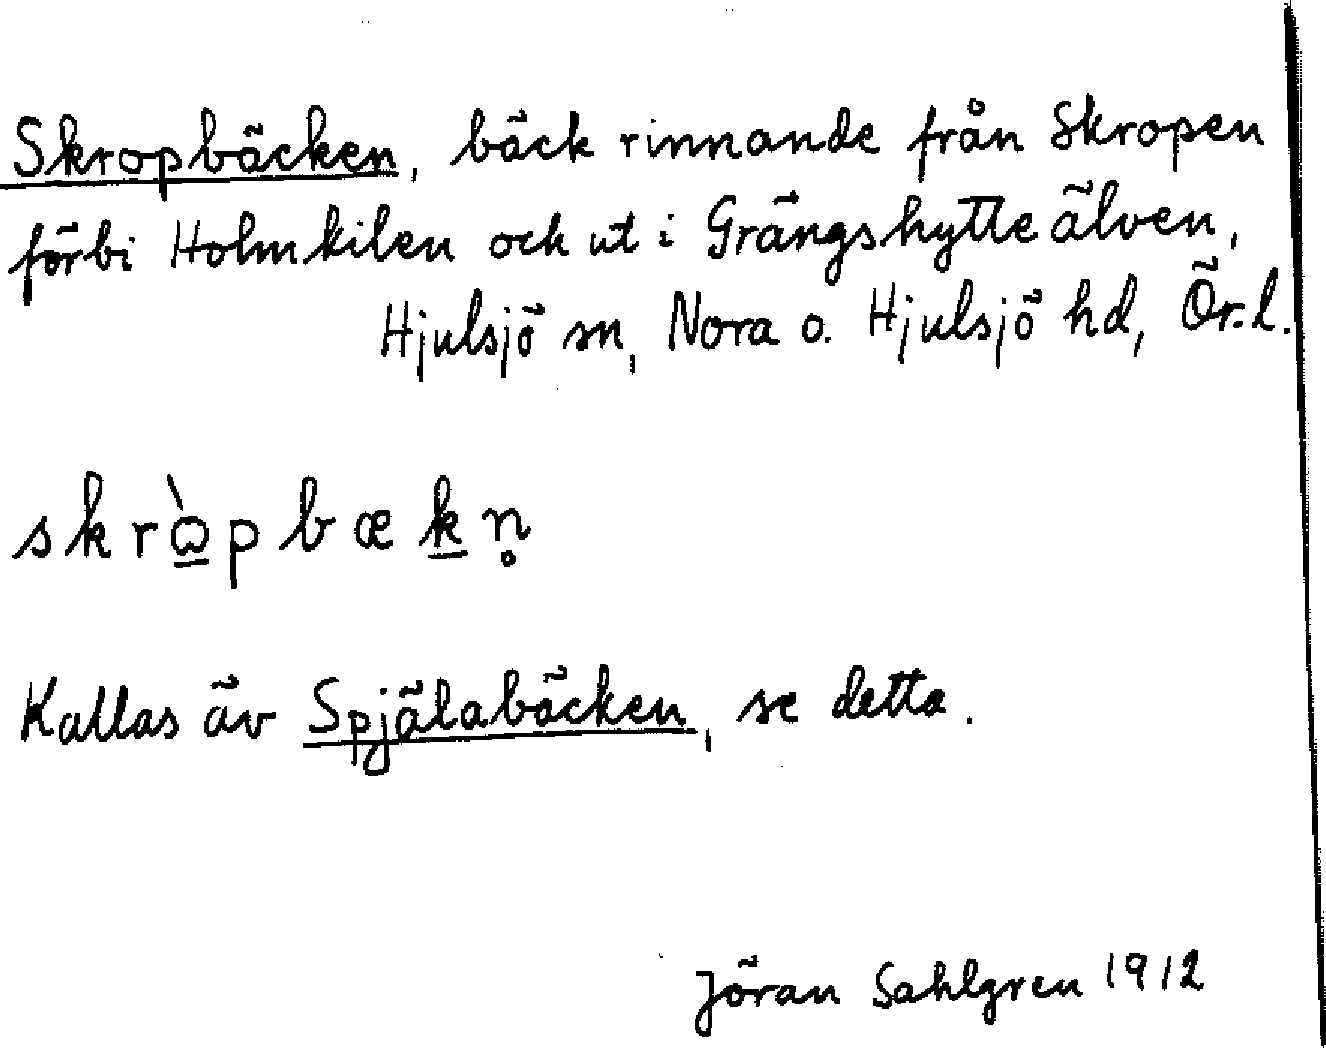 Skropbäcken, bäck rinnande från Skropen
förbi Holmkilen och ut i Grängshytteälven,
Hjulsjö sn, Nora o. Hjulsjö hd, Ör. l.
skrὼ̲pbæk̲n̥
Kallas äv Spjälabäcken, se detta.
Jöran Sahlgren 1912